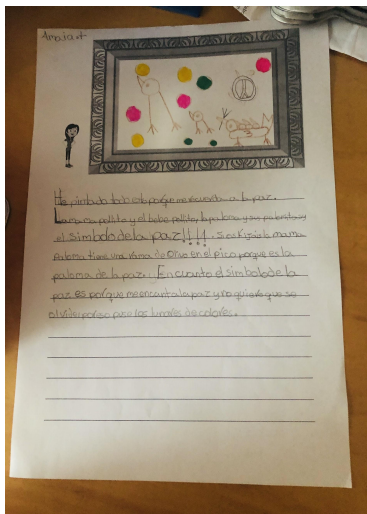 He pintado todo esto porque me recuerda a la paz.
La mama pollito y el bebe pollito, la paloma y sus palomitas y
el simbolo de la paz!!!!. Si os fijais la mama
Paloma tiene una rama de olivo en el pico porque es la
paloma de la paz. En cuanto el simbolo de la
paz es porque me encanta la paz y no quiero que se
olvide por eso puse los lunares de colores.